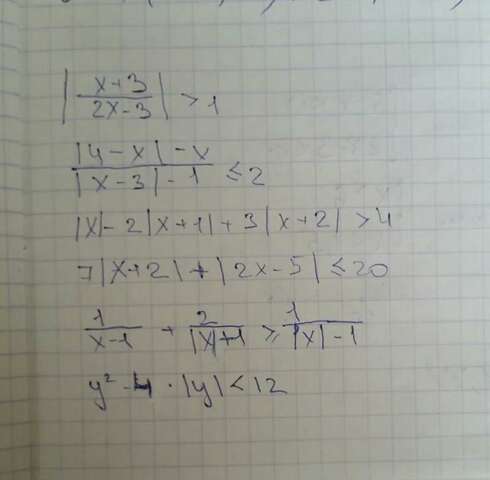 |x+3 / 2x-3| > 1
|4-x|-x / |x-3|-1 ≤ 2
|x|-2|x+1|+3|x+2| > 4
7|x+2|+|2x-5| ≤ 20
1/x-1 + 2/|x|+1 ≥ 1/|x|-1
y²-4·|y| < 12